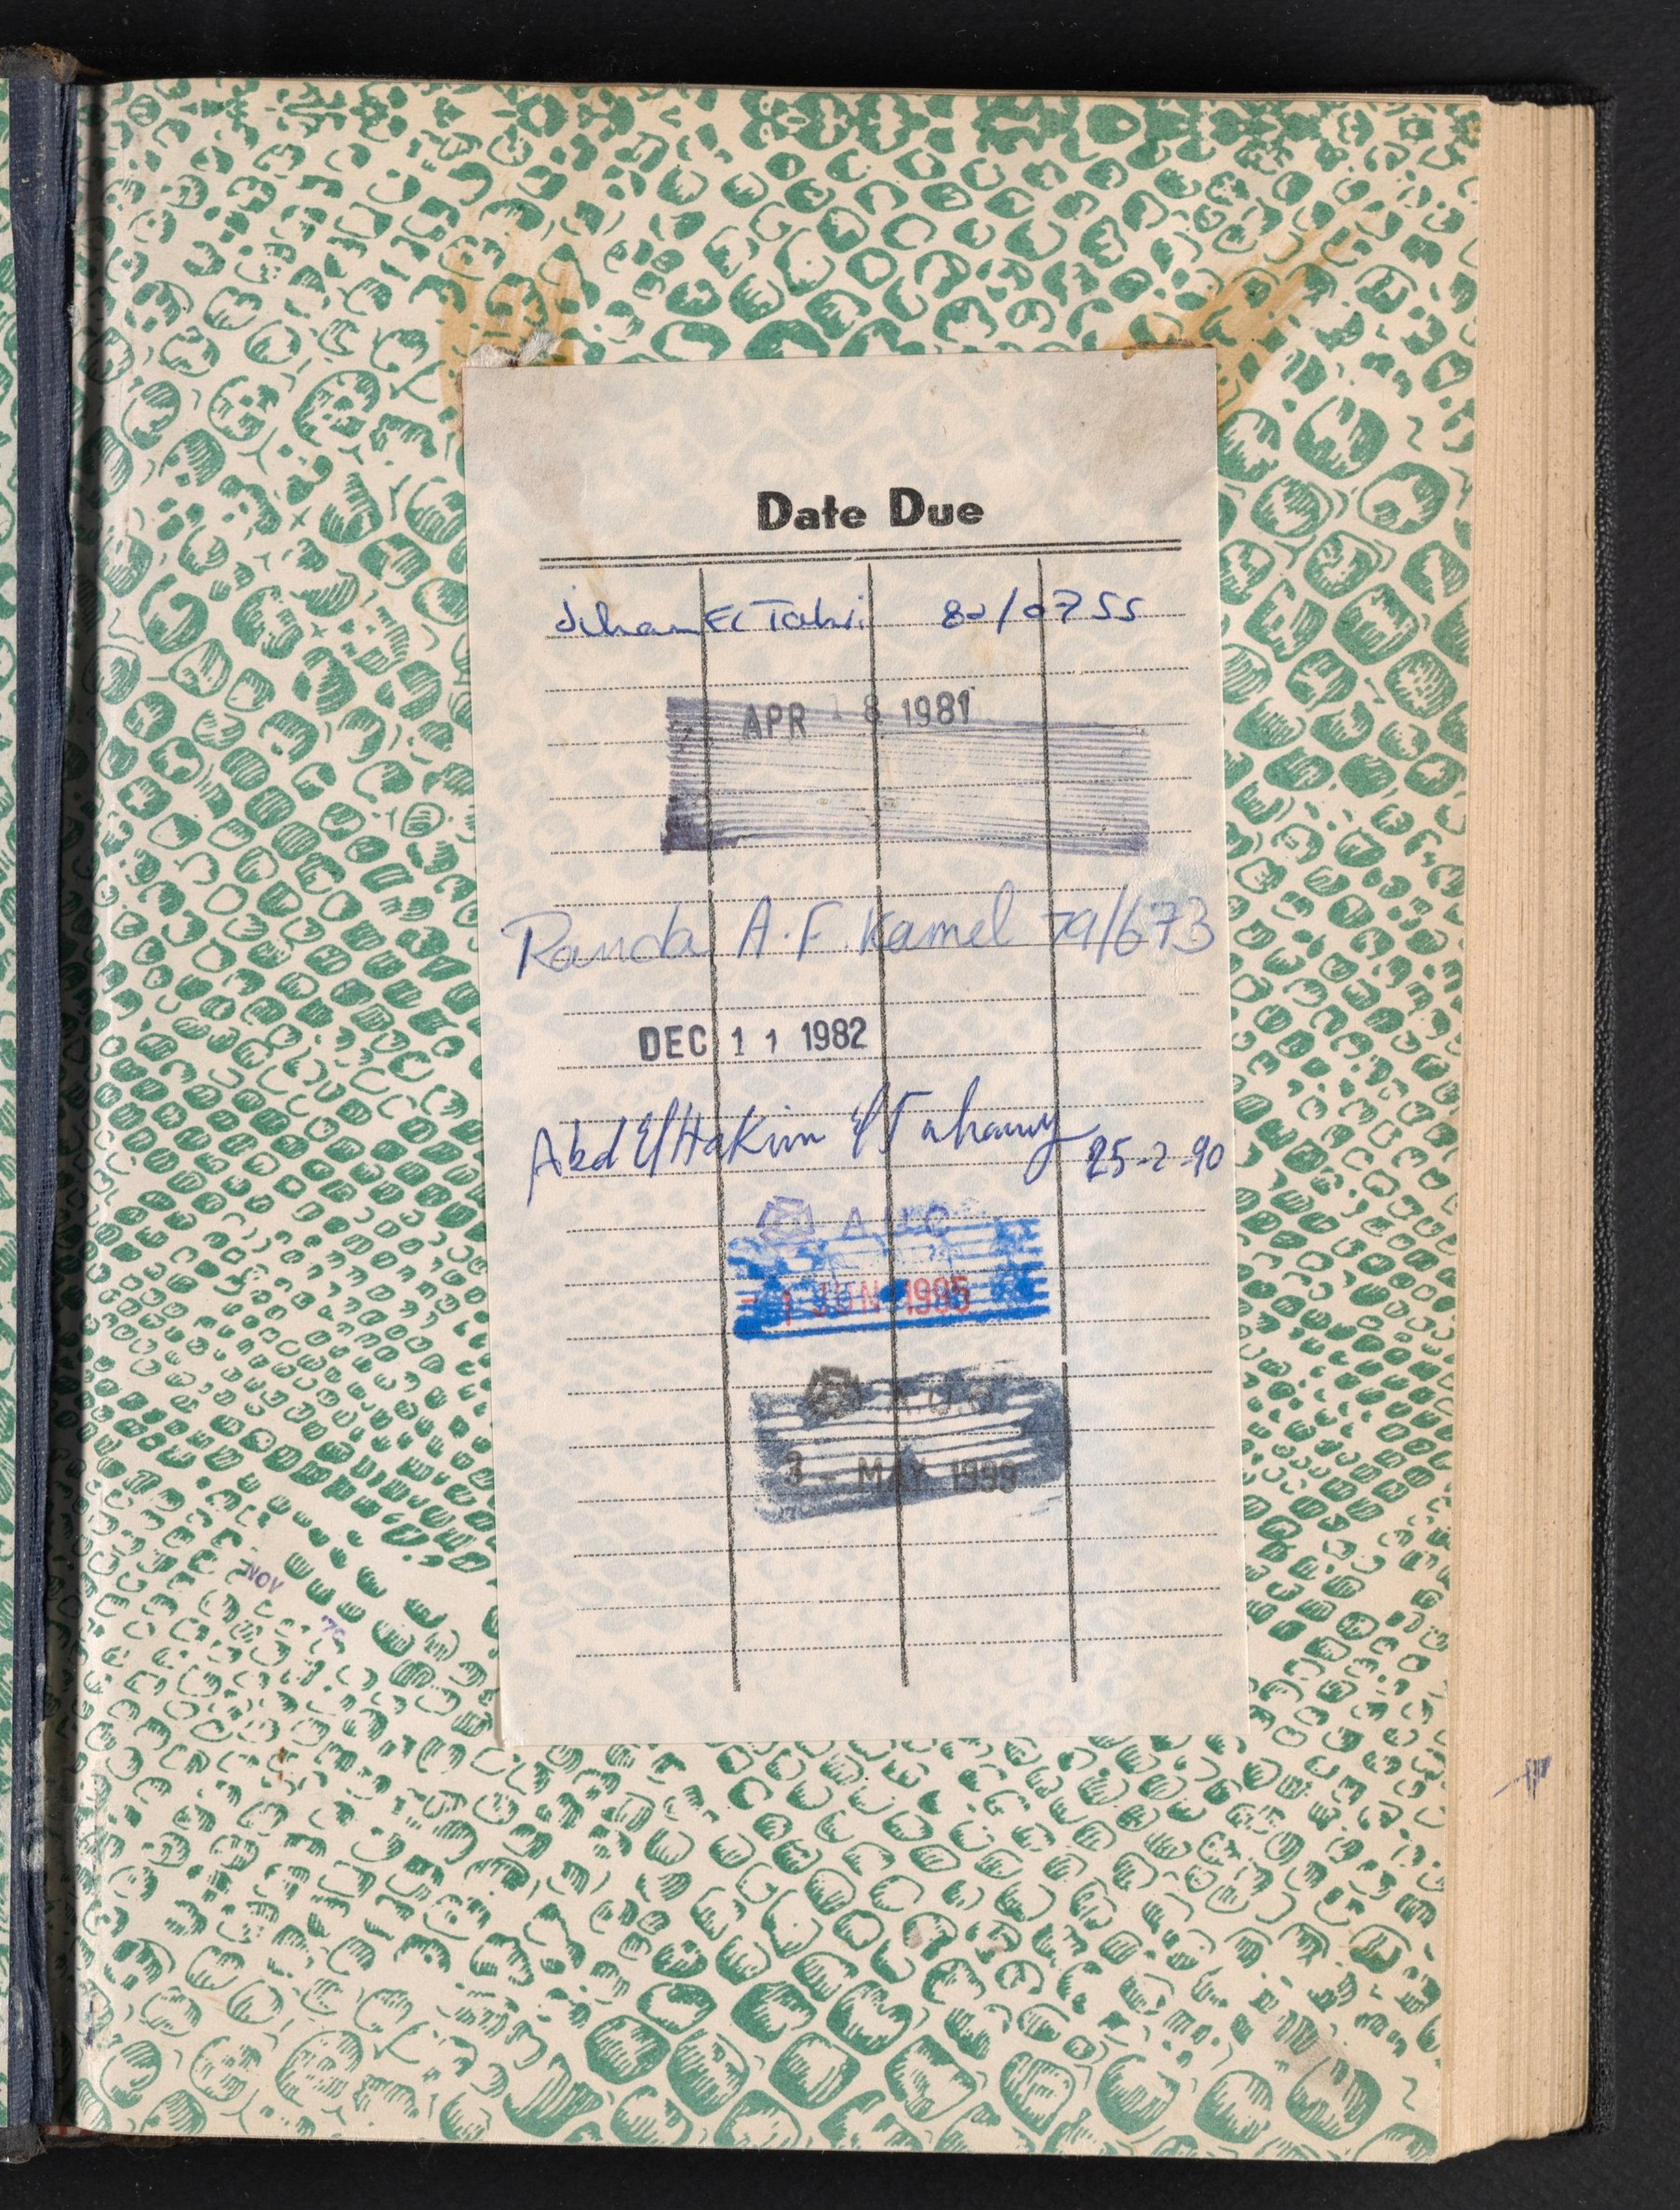 Date Due
Jihan El Tahri 80/0755
APR 18 1981
Randa A.F. Kamel 79/673
DEC 11 1982
Abd El Hakim El Tahawy 25-2-90
A.U.C
- 1 JUN 1995
A.U.C
3 - MAY 1999
NOV